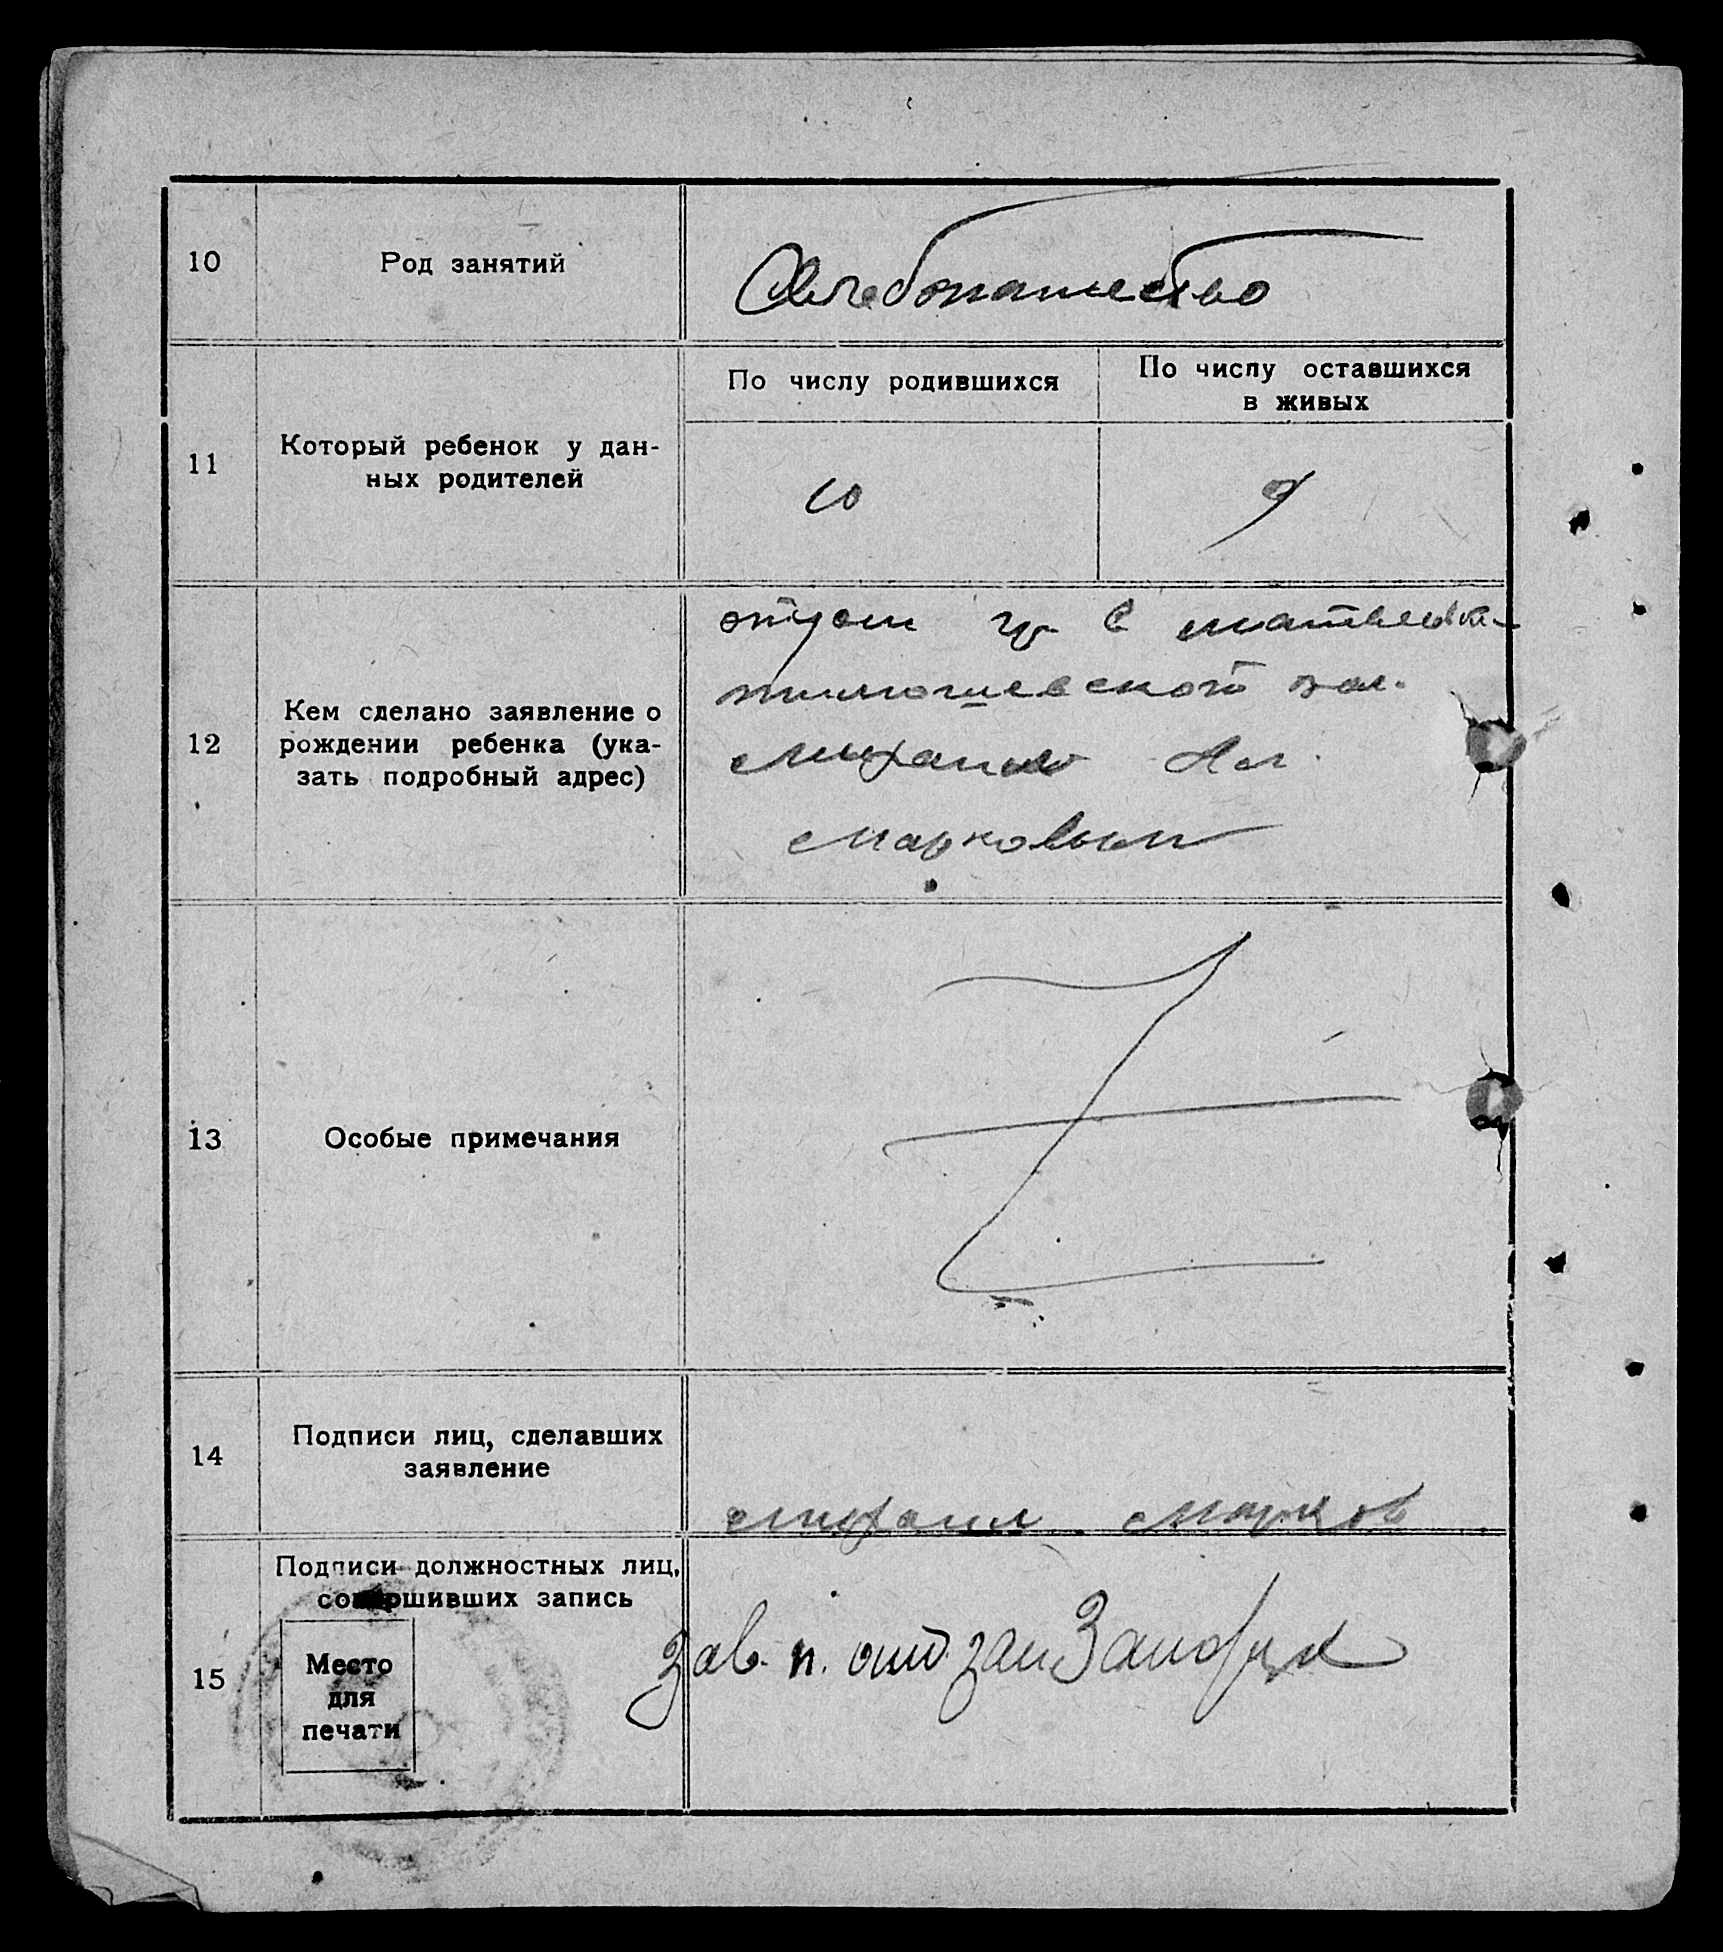 10
Род занятий
Хлебопашество
11
Который ребенок у дан-
ных родителей
По числу родившихся
По числу оставшихся
в живых
10
9
12
Кем сделано заявление о
рождении ребенка (ука-
зать подробный адрес)
отцом гр в
вол.
Михаилом Ал.
Марковым
13
Особые примечания
14
Подписи лиц, сделавших
заявление
Михаил Марков
15
Подписи должностных лиц,
совершивших запись
Место
для
печати
Зав. п. отд. зап